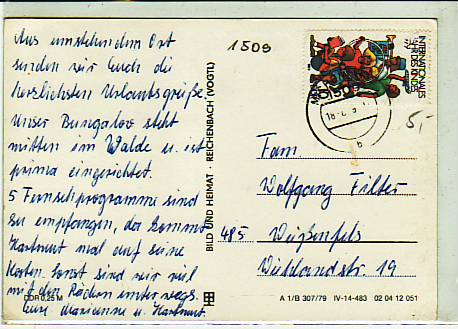 Aus umstehendem Ort
senden wir Euch die
herzlichsten Urlaubsgrüße.
Unser Bungalow steht
mitten im Walde u. ist
prima eingerichtet.
5 Fernsehprogramme sind
zu empfangen, da kommt
Hartmut mal auf seine
Kosten. Sonst sind wir viel
mit den Rädern unterwegs.
Eure Marianne u. Hartmut.
DDR 0,25 M
BILD UND HEIMAT · REICHENBACH (VOGTL)
1509
INTERNATIONALES
JAHR DES KINDES
DDR
5,-
Fam.
Wolfgang Filter
485 Weißenfels
Wielandstr. 19
A 1/B 307/79 IV-14-483 02 04 12 051